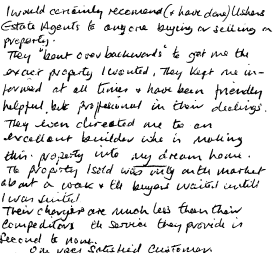 I would certainly recommend (& have done) Ushers
Estate Agents to anyone buying or selling a
property.
They "bent over backwards" to get me the
exact property I wanted. They kept me in-
formed at all times & have been friendly
helpful but professional in their dealings.
They even directed me to an
excellent builder who is making
this property into my dream home.
The property I sold was only on the market
about a week & the buyers waited until
I was suited
Their charges are much less than their
competitors the service they provide is
second to none.
One very satisfied customer